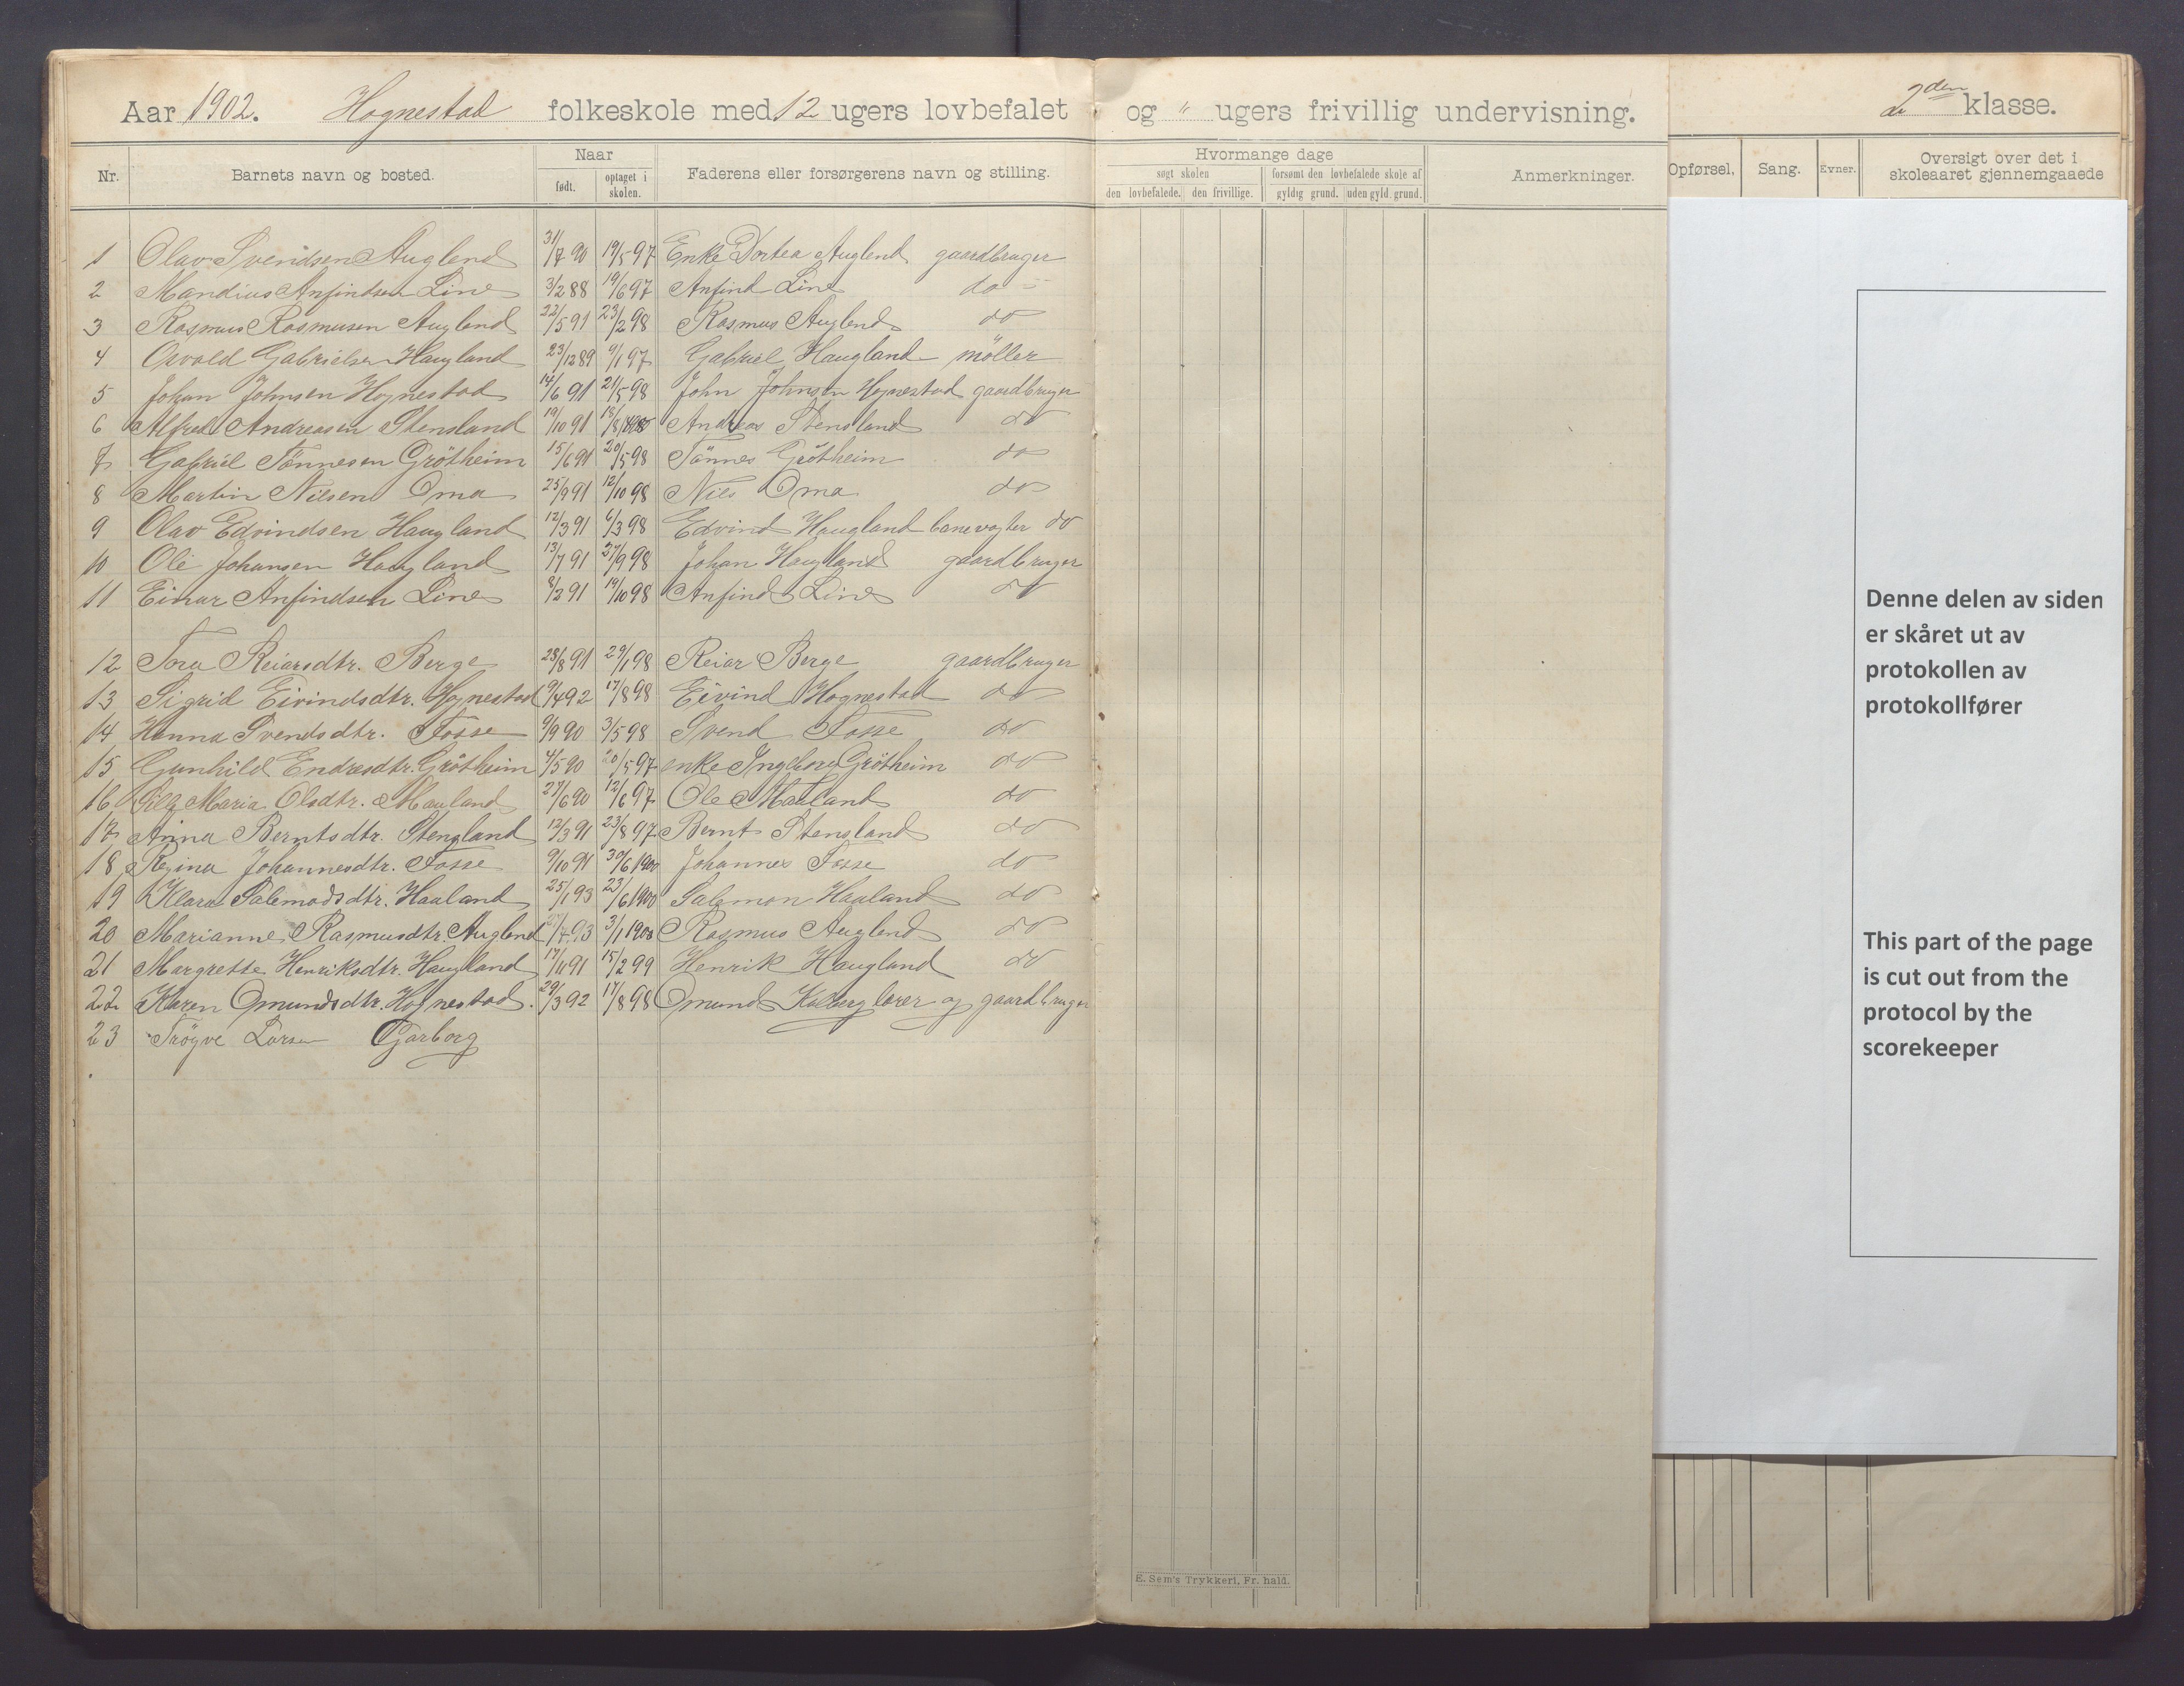 Aar 1902. Hognestad folkeskole med 12 ugers lovbefalet og " ugers frivillig undervisning. 2den klasse.
Nr. Barnets navn og bosted. Naar født. optaget i skolen. Faderens eller forsørgerens navn og stilling. Hvormange dage søgt skolen den lovbefalede. den frivillige. forsømt den lovbefalede skole af gyldig grund. uden gyld. grund. Anmerkninger. Opførsel. Sang. Evner. Oversigt over det i skoleaaret gjennemgaaede
1 Olav Svendsen Auglend 31/7 90 19/5 97 Enke Dortea Auglend gaardbruger
2 Mandius Anfindsen Line 3/2 88 19/6 97 Anfind Line do
3 Rasmus Rasmusen Auglend 22/5 91 23/2 98 Rasmus Auglend do
4 Osvald Gabrielsen Haugland 23/12 89 9/1 97 Gabriel Haugland möller
5 Johan Johnsen Hognestad 14/6 91 21/5 98 John Johnsen Hognestad gaardbruger
6 Alfred Andreasen Stensland 19/10 91 Andreas Stensland do
7 Gabriel Tönnesen Grötheim 15/6 91 20/5 98 Tönnes Grötheim do
8 Martin Nilsen Oma 25/9 91 12/10 98 Nils Oma do
9 Olav Edvindsen Haugland 12/3 91 6/3 98 Edvind Haugland banevogter do
10 Ole Johansen Haugland 13/7 91 27/9 98 Johan Haugland gaardbruger
11 Einar Anfindsen Line 8/2 91 19/10 98 Anfind Line do
12 Tora Reiarsdtr. Berge 28/8 91 29/1 98 Reiar Berge gaardbruger
13 Sigrid Eivindsdtr. Hognestad 9/4 92 17/8 98 Eivind Hognestad do
14 Hanna Svendsdtr. Fosse 9/9 90 3/5 98 Svend Fosse do
15 Gunhild Endresdtr. Grötheim 4/5 90 20/5 97 enke Ingeborg Grötheim do
16 Maria Olsdtr. Mauland 27/6 90 12/6 97 Ole Mauland do
17 Anna Berntsdtr. Stensland 12/3 91 23/8 97 Bernt Stensland do
18 Regina Johannesdtr. Fosse 9/10 91 30/6 1900 Johannes Fosse do
19 Klara Salemonsdtr. Haaland 25/1 93 23/6 1900 Salemon Haaland do
20 Marianne Rasmusdtr. Auglend 3/1 1900 Rasmus Auglend do
21 Margrette Henriksdtr. Haugland 17/11 91 15/2 99 Henrik Haugland do
22 Karen Omundsdtr. Hognestad. 29/3 92 17/8 98 Omund Kalberg lærer og gaardbruger
23 Trögve Larsen Garborg
Denne delen av siden
er skåret ut av
protokollen av
protokollfører
This part of the page
is cut out from the
protocol by the
scorekeeper
E. Sem's Trykkeri, Fr. hald.